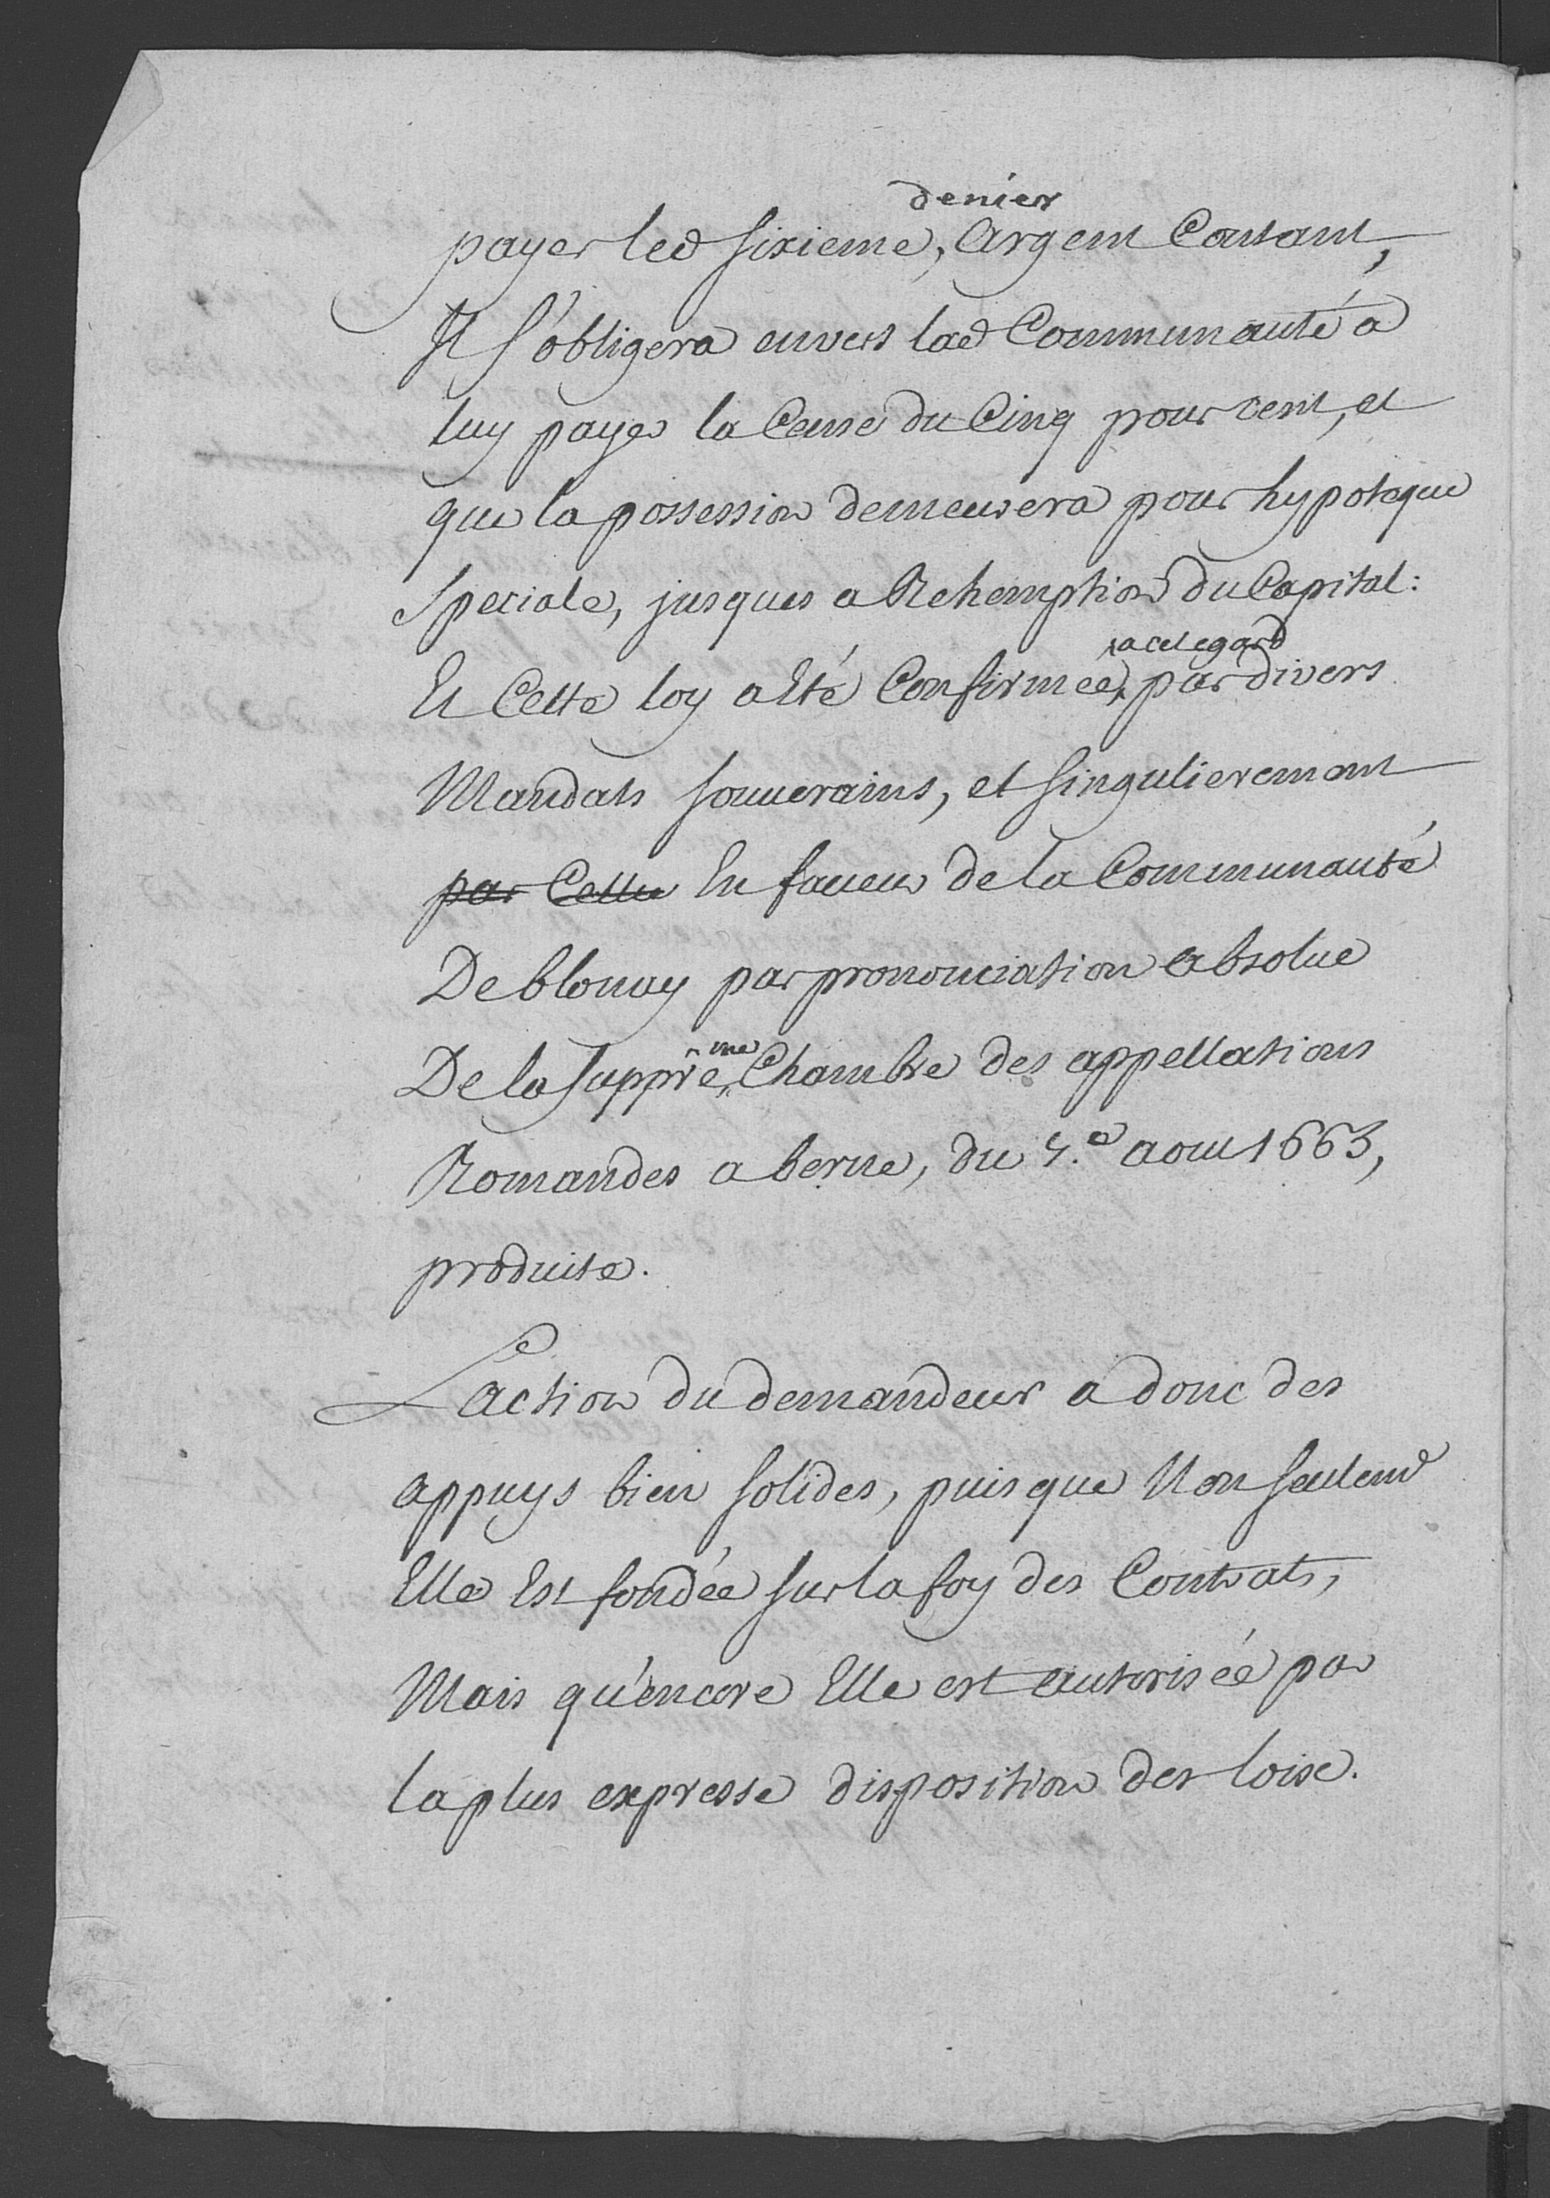 denier
payer led sixieme, Argent Contant,
Il s'obligera envers lad Communauté a
luy payer la Cense du Cinq pour cent, et
que la possession demeurera pour hypoteque
speciale, jusques a Rehemption du Capital:
a cet egard
Et Cette loy a Eté Confirmée, par divers
Mandats souverains, et singulierement
par Celle En faveur de la Communauté
De blonay par prononciation absolue
De la Supprême Chambre des appellations
Romandes a berne, du 5.e aout 1663,
produite.
L'action du demandeur a donc des
appuys bien solides, puis que Non seulemt
Elle Est fondée sur la foy des Contrats,
Mais qu'encore Elle est autorisée par
la plus expresse disposition des loix.